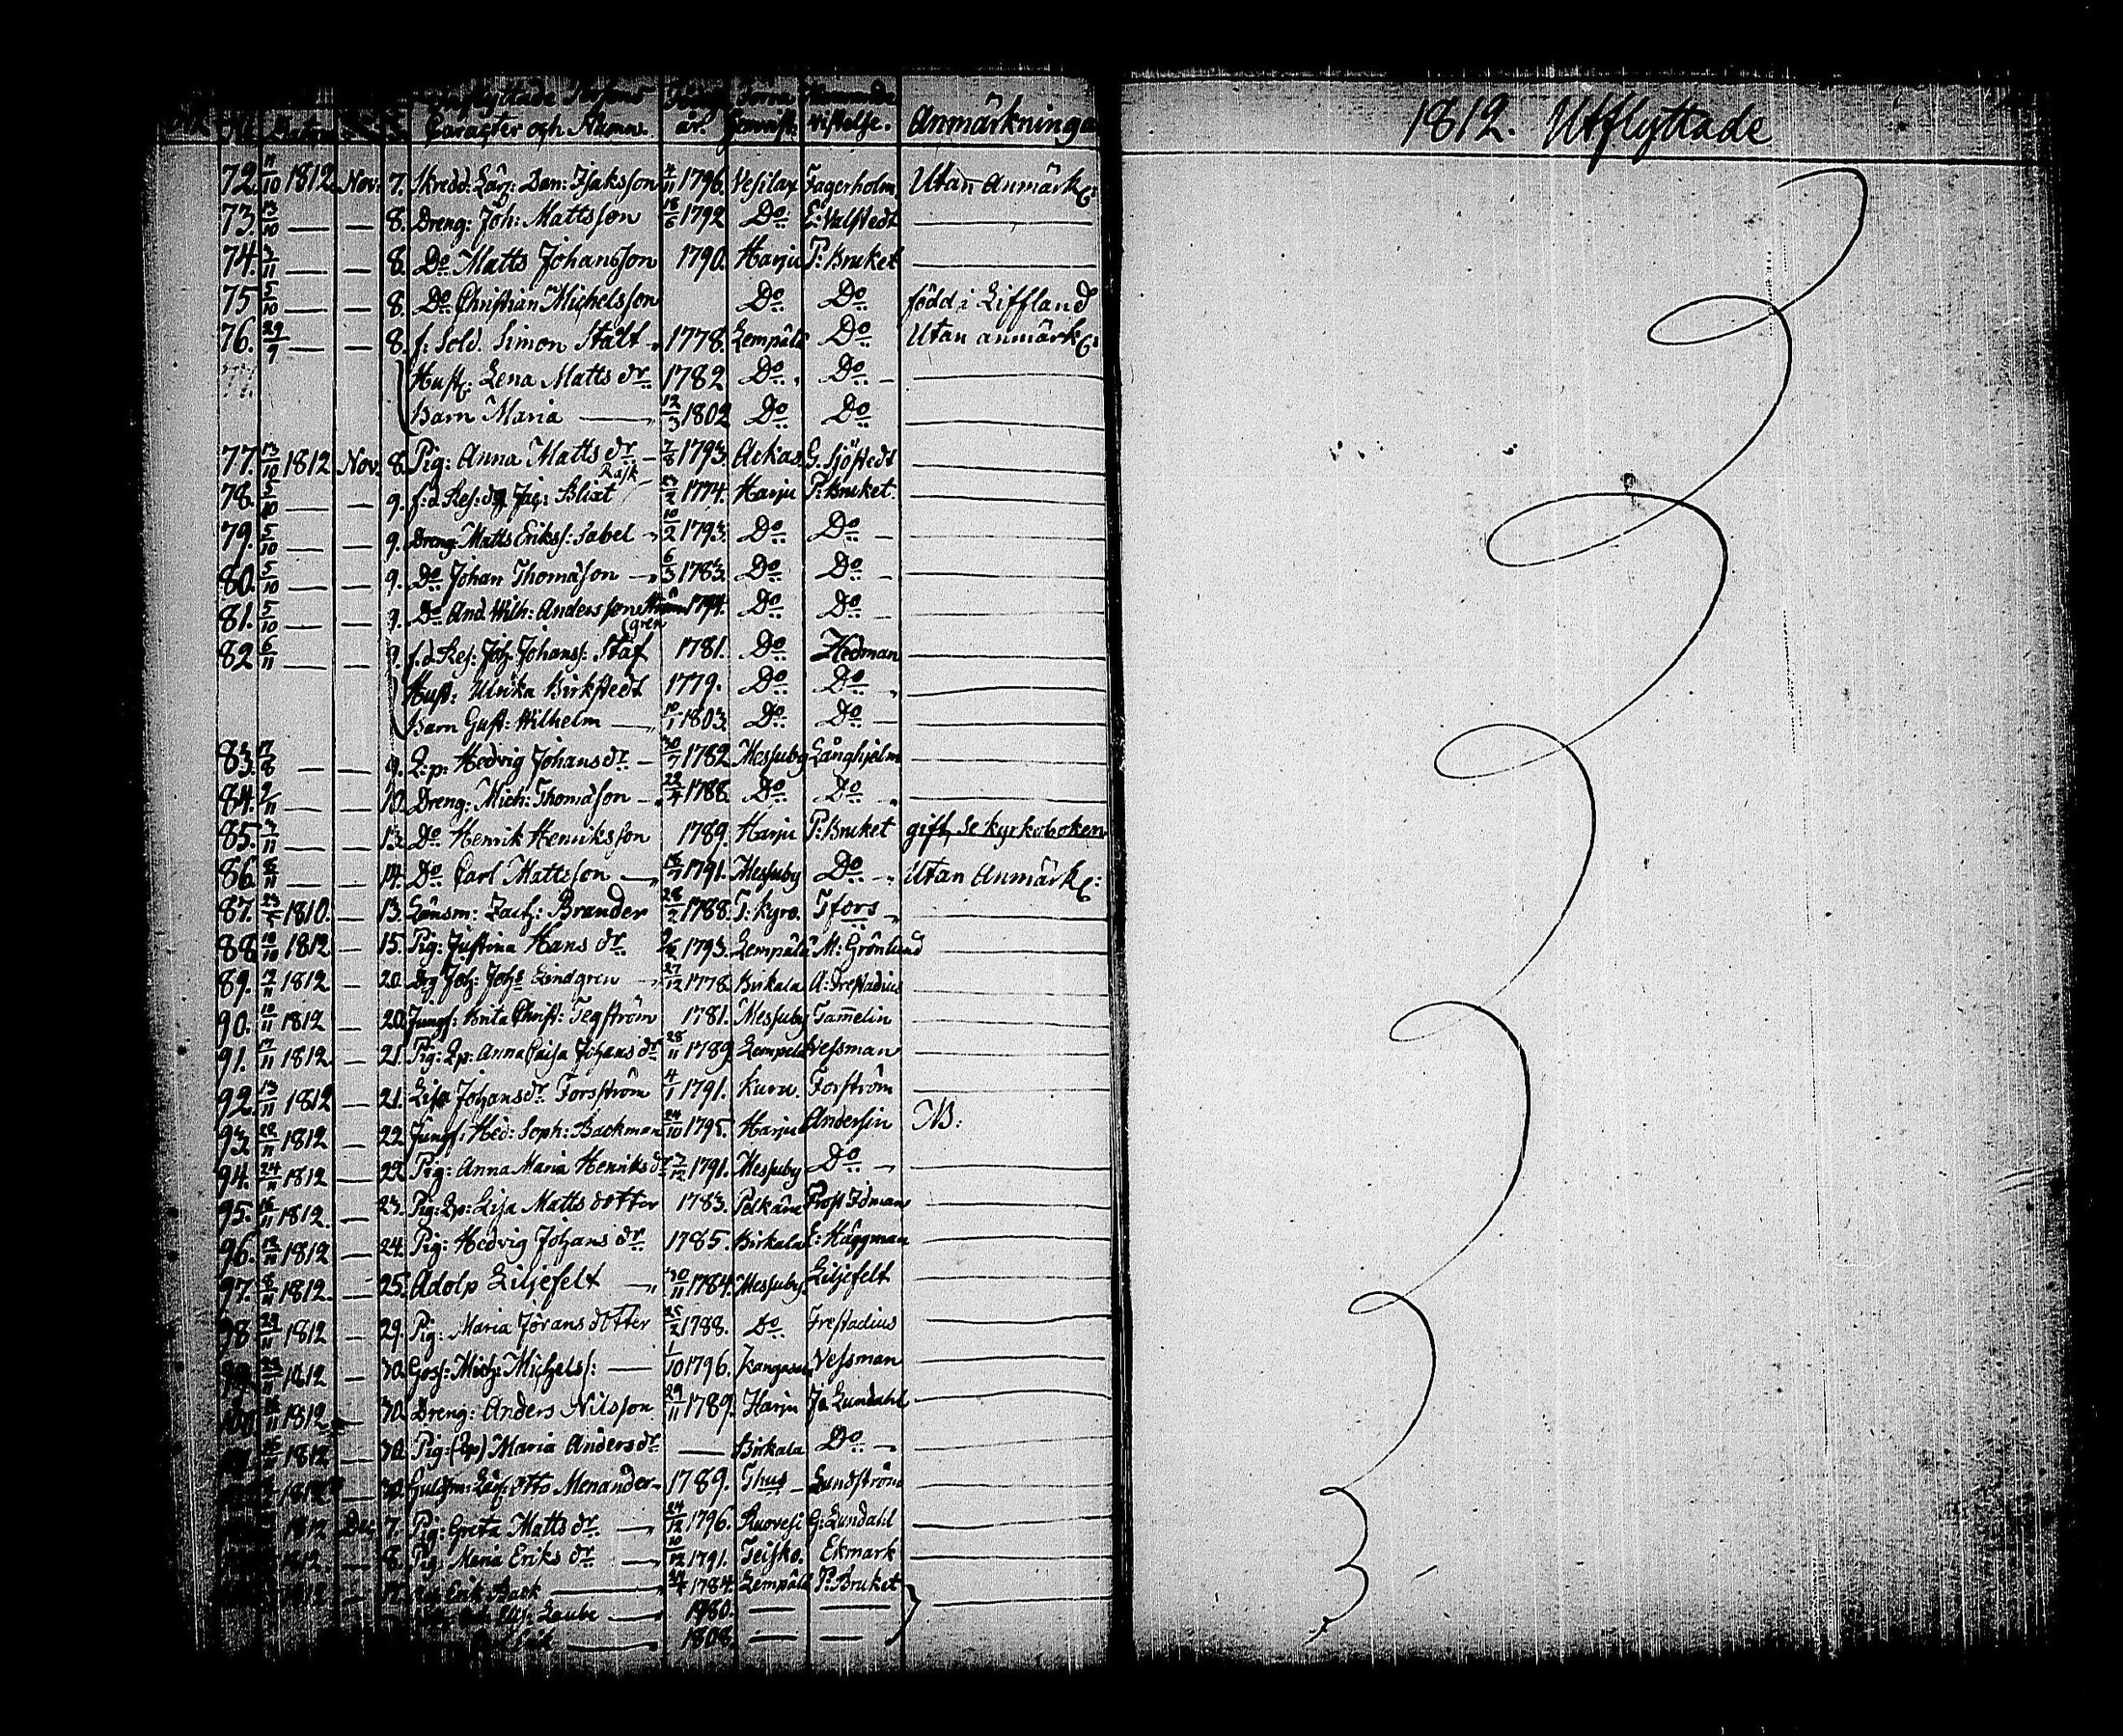 Inflyttade Persons Födelse Förra Hemmande
No. Datum Caracter och Namn år. hemvist. vistelse. Anmärkningar
72. 11/10 1812 Nov. 7. Skredd: Lär: Dan: Isaksson 4/11 1796. Vesilax Fagerholm Utan Anmärkg:
73. 13/10 — — 8. Dreng: Joh: Mattsson 18/6 1792 Do E: Valstedt —
74. 3/11 — — 8. Do Matts Johansson 1790. Harju P: Bruket —
75 5/10 — — 8. Do Christian Michelsson Do Do född i Liffland
76. 29/9 — — 8. f. Sold. Simon Stålt 1778. Lempälä Do Utan anmärkg:
Hust: Lena Matts dr 1782 Do Do —
Barn Maria — 12/3 1802 Do Do —
77. 13/10 1812 Nov. 8. Pig: Anna Matts dr 2/8 1793. Ackas G. Sjöstedt —
Rask
78. 5/10 — — 9. f: d. Res: Blixt 23/2 1774. Harju P: Bruket. —
79. 5/10 — — 9. Dreng Matts Eriks: Sabel 10/2 1793. Do Do —
80. 5/10 — — 9. Do Johan Thomasson 6/3 1783. Do Do —
81. 5/10 — — 9. Do And. Wilh: Andersson 1794. Do Do —
(gren
82 6/11 — — 9. f. d. Res: Joh. Johanss: Staf 1781. Do Hedman —
Hust: Ulrika Birkstedt 1779. Do Do —
Barn Gust: Wilhelm — 10/1 1803. Do Do —
83. 17/8 — — 9. L: p: Hedvig Johans dr 30/7 1782 Messuby Långhjelm —
84. 2/11 — — 10. Dreng: Mich: Thomasson 22/4 1788. Do Do —
85. 3/11 — — 13. Do Henrik Henriksson 1789. Harju P: Bruket gift, se kyrkoboken
86. 8/11 — — 14. Do Carl Mattsson 18/7 1791. Messuby Do Utan Anmärkg:
87. 23/5 1810. — 13. Länsm: Zach: Brander 28/2 1788. T: kyro. Tfors —
88. 10/10 1812 — 15. Pig: Justina Hans dr 1793. Lempälä M: Grönlund —
89. 7/11 1812 — 20. Drg Joh: Johs Lindgren 27/12 1778. Birkala A: Frestadius —
90. 10/11 1812 — 20. Jungf: Brita Christ: Tegström 1781. Messuby Tamelin —
91. 7/11 1812 — 21. Pig: Lp: Anna Caisa Johans dr 28/11 1789. Lempälä Vessman —
92. 13/11 1812 — 21. Lisa Johans dr Forsström 4/1 1791. Kuru. Forström —
93. 22/11 1812 — 22. Jungf: Hed: Soph: Backman 24/10 1795. Harju Andersin NB:
94. 24/11 1812 — 22. Pig: Anna Maria Henriks dr 3/12 1791. Messuby Do —
95. 16/11 1812 — 23. Pig: Lp: Lisa Matts dotter 1783. Pelkäne Prost Idman —
96. 13/11 1812 — 24. Pig: Hedvig Johans dr 1785. Birkala E: Häggman —
97. 8/11 1812 — 25. Adolp Liljefelt 30/11 1784. Messuby. Liljefelt —
98 29/11 1812 — 29. Pig: Maria Jörans dotter 25/2 1788. Do Frestadius —
99. 1812 — 30. Goss: Mich: Michels: — 1/10 1796. Kangasala Vessman —
100. 1812 — 30. Dreng: Anders Nilsson 29/11 1789. Harju Ja Lundahl —
1812 — 30. Pig: (Lp) Maria Anders dr — Birkala Do —
1812 — 30. Guldsm: Lär: Otto Menander 1789. Thus Lundström —
1812 Dec 7. Pig: Greta Matts dr 24/12 1796. Ruovesi G: Lundahl —
1812 — 8. Pig: Maria Eriks dr 10/12 1791. Teisko. Ekmark —
1812 — Erik Back — 1784. Lempälä P: Bruket —
Laube 1780. — —
1808. — —
1812. Utflyttade